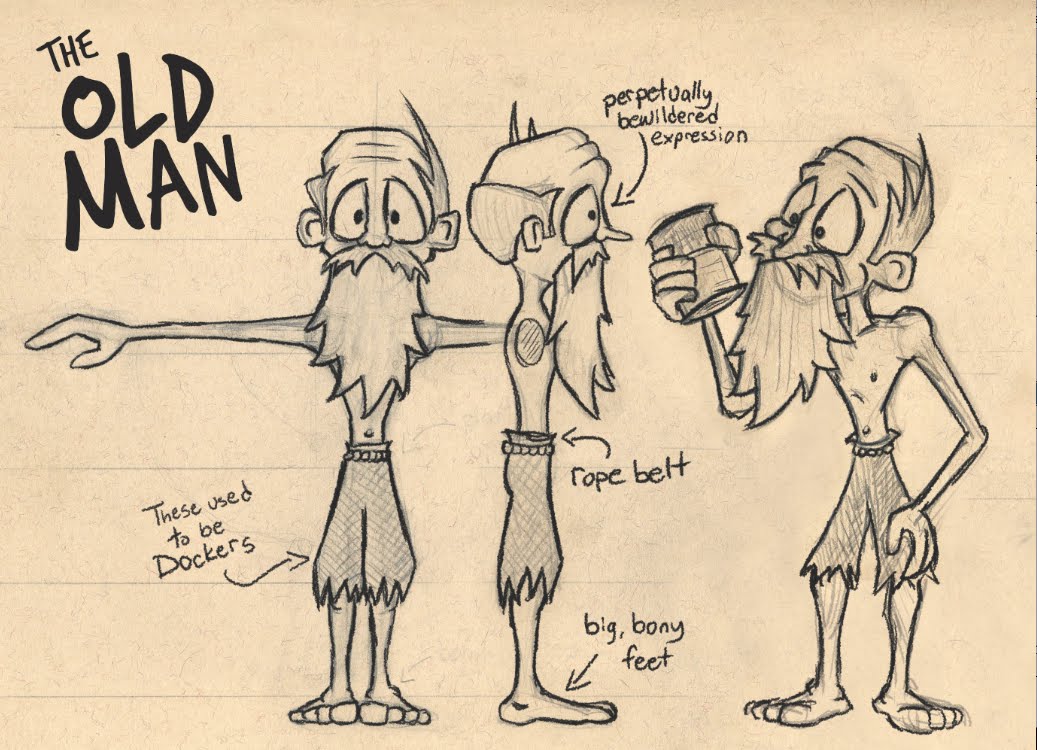 THE
OLD
MAN
perpetually
bewildered
expression
rope belt
These used
to be
Dockers
big, bony
feet